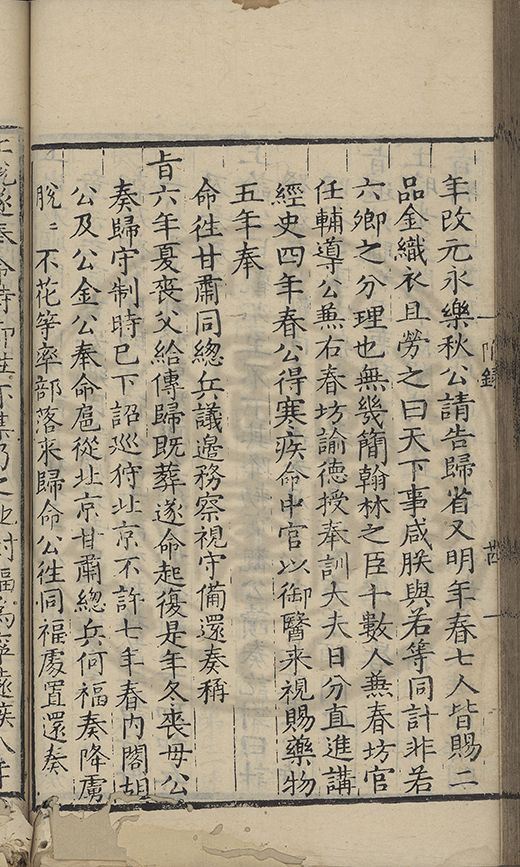 附錄
廿
年改元永樂秋公請告歸省又明年春七人皆賜二
品金織衣且勞之曰天下事咸朕與若等同計非若
六卿之分理也無幾簡翰林之臣十數人兼春坊官
任輔導公兼右春坊諭德授奉訓大夫日分直進講
經史四年春公得寒疾命中官以御醫来視賜藥物
五年奉
命徃甘肅同總兵議邉務察視守備還奏稱
㫖六年夏喪父給傳歸既葬遂命起復是年冬喪母公
奏歸守制時已下詔巡狩北京不許七年春内閣胡
公及公金公奉命扈從北京甘肅總兵何福奏降虜
脫〻不花等率部落来歸命公徃同福處置還奏